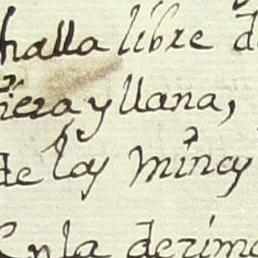 halla libre d
iera y llana,
de los mines
En la dezima